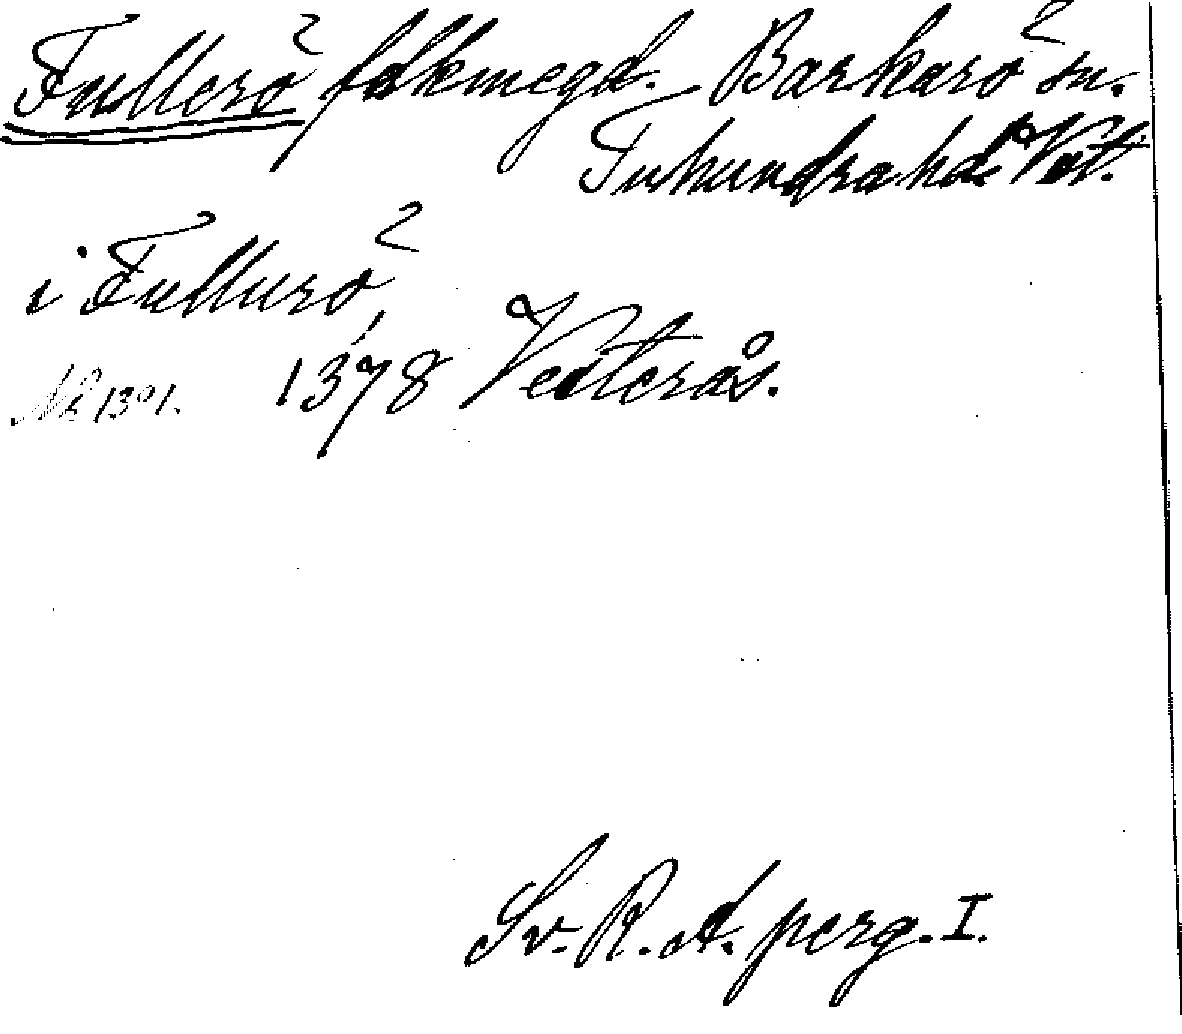 Fullerö fdkmegd. Barkarö sn.
Tuhundra hd. Vst.
i Fullurö,
1378 Vesterås.
Nr 1391.
Sv. R. A. perg. I.